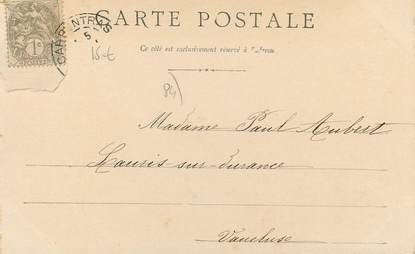 CARTE POSTALE
CARPENTRAS
5
1c
15 €
Ce côté est exclusivement réservé à l'adresse
84)
Madame Paul Aubert
Lauris-sur-durance
Vaucluse